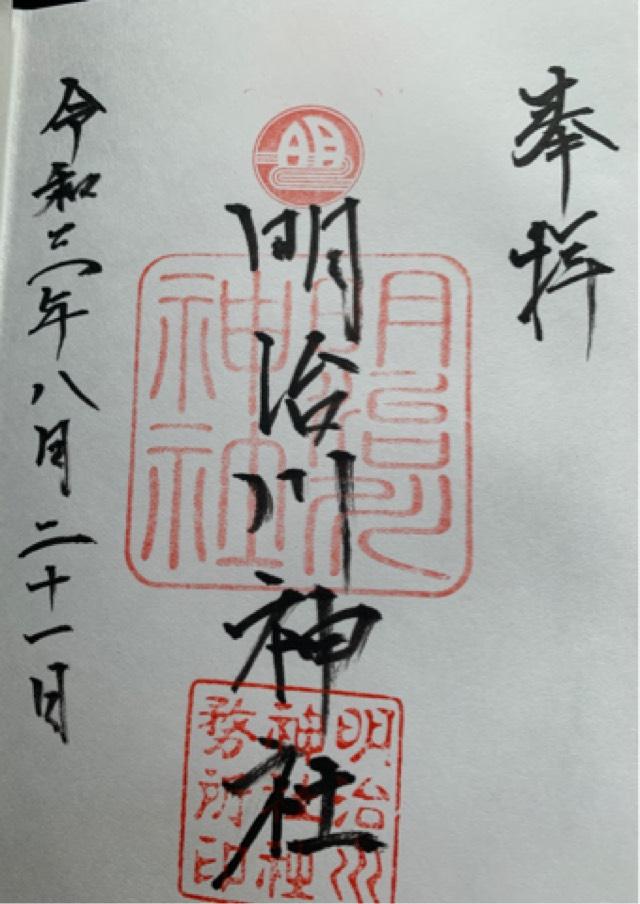 奉拝
明治川神社
明治川
神社社
務所印
令和三年八月二十一日